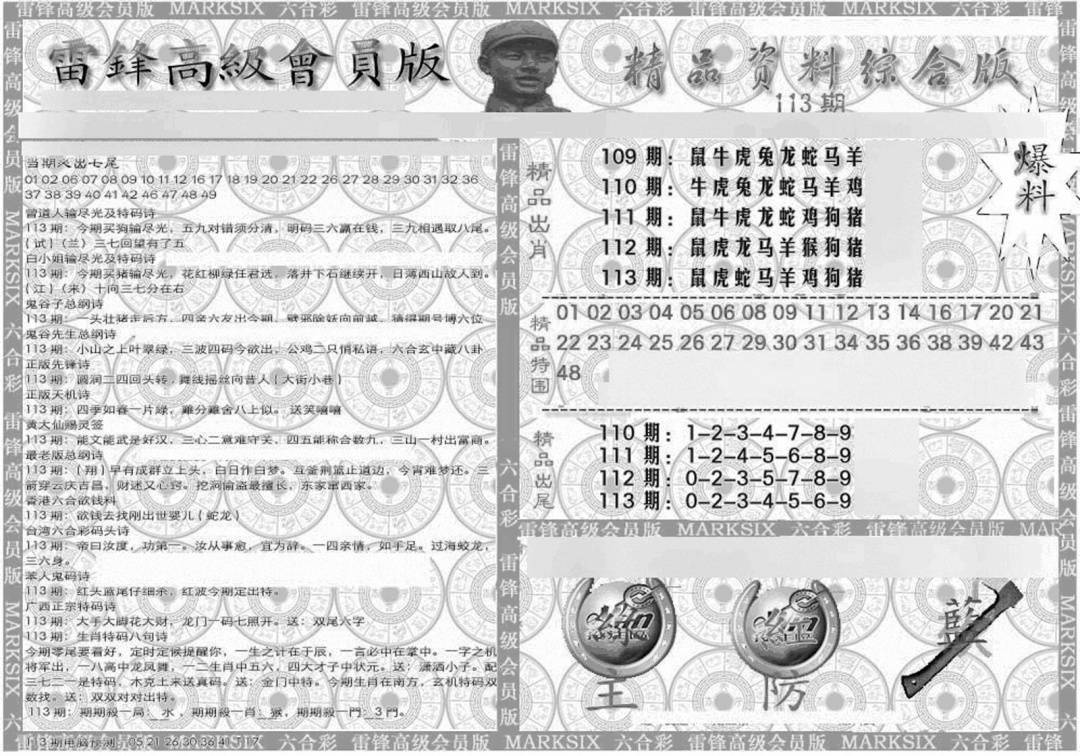 雷锋高级会员版 MARKSIX 六合彩 雷锋高级会员版 MARKSIX 六合彩 雷锋高级会员版 MARKSIX 六合彩 雷锋
雷鋒高級會員版
精品资料综合版
113期
爆料
01 02 06 07 08 09 10 11 12 16 17 18 19 20 21 22 26 27 28 29 30 31 32 36
37 38 39 40 41 42 46 47 48 49
曾道人输尽光及特码诗
113期：今期买狗输尽光，五九对错须分清，明码三六赢在钱，三九相遇取八尾。
（试）（兰）三七回望有了五
白小姐输尽光及特码诗
113期：今期买猪输尽光，花红柳绿任君选，落井下石继续开，日薄西山故人到。
（江）（米）十问三七分在右
鬼谷子总纲诗
113期：一头壮猪走后方，四亲六友出今期，劈邪除妖向前越，猜得期号博六位
鬼谷先生总纲诗
113期：小山之上叶翠绿，三波四码今欲出，公鸡二只悄私语，六合玄中藏八卦
正版先锋诗
113期：圆润二四回头转，舞线摇丝向昔人（大街小巷）
正版天机诗
113期：四季如春一片绿，难分难舍八上似。 送笑嘻嘻
黄大仙赐灵签
113期：能文能武是好汉，三心二意难守关，四五能称合数九，三山一村出富商。
最老版总纲诗
113期：（翔）早有成群立上头，白日作白梦。互鉴荆篮止道边，今宵难梦还。三
箭穿云庆吉昌，财迷又心窍。挖洞偷盗最擅长，东家串西家。
香港六合欲钱料
113期：欲钱去找刚出世婴儿（蛇龙）
台湾六合彩码头诗
113期：帝曰汝度，功第一。汝从事愈，宜为辞。一四亲情，如手足。过海蛟龙，
三六身。
本人鬼码诗
113期：红头蓝尾仔细杀，红波今期定出特。
广西正宗特码诗
113期：大手大脚花大财，龙门一码七照开。送：双尾六字
113期：生肖特码八句诗
今期零尾要看好，定时定候提醒你，一生之计在于辰，一言必中在掌中。一字之机
将军出，一八高中龙凤舞，一二生肖中五六，四大才子中状元。送：潇洒小子。配
三七二一是特码，木克土来送真码。送：金门中特。今期生肖在南方，玄机特码双
数找，送：双双对对出特。
113期：期期殺一局：水，期期殺一肖：猴，期期殺一門：3門。
精品出肖
109 期：鼠牛虎兔龙蛇马羊
110 期：牛虎兔龙蛇马羊鸡
111 期：鼠牛虎龙蛇鸡狗猪
112 期：鼠虎龙马羊猴狗猪
113 期：鼠虎蛇马羊鸡狗猪
精品特围
01 02 03 04 05 06 08 09 11 12 13 14 16 17 20 21
22 23 24 25 26 27 29 30 31 34 35 36 38 39 42 43
48
精品出尾
110 期：1-2-3-4-7-8-9
111 期：1-2-4-5-6-8-9
112 期：0-2-3-5-7-8-9
113 期：0-2-3-4-5-6-9
雷锋高级会员版 MARKSIX 六合彩 雷锋高级会员版 MARK
主
防
藍
雷锋高级会员版 MARKSIX 六合彩 雷锋高级会员版 MARKSIX 六合彩 雷锋